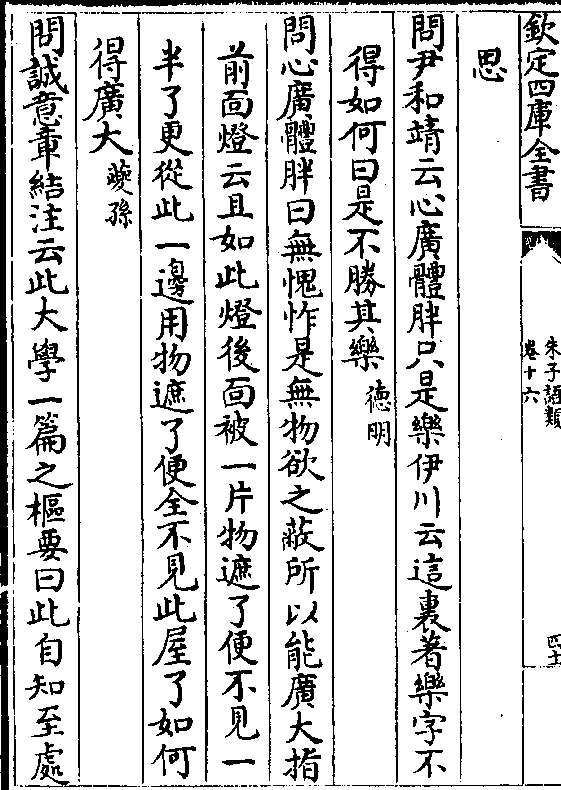 欽定四庫全書
朱子語類
卷十六
四十
思
問尹和靖云心廣體胖只是樂伊川云這裏著樂字不
得如何曰是不勝其樂德明
問心廣體胖曰無愧怍是無物欲之蔽所以能廣大指
前面燈云且如此燈後面被一片物遮了便不見一
半了更從此一邊用物遮了便全不見此屋了如何
得廣大夔孫
問誠意章結注云此大學一篇之樞要曰此自知至處